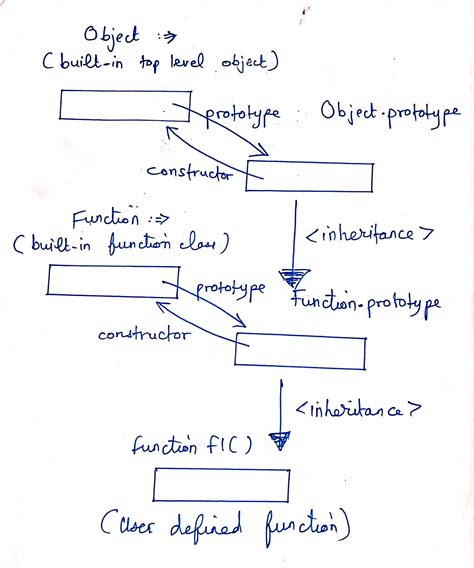 Object :⇒
(built-in top level object)
prototype
Object.prototype
constructor
<inheritance>
Function :⇒
(built-in function class)
prototype
Function.prototype
constructor
<inheritance>
function f1()
(User defined function)